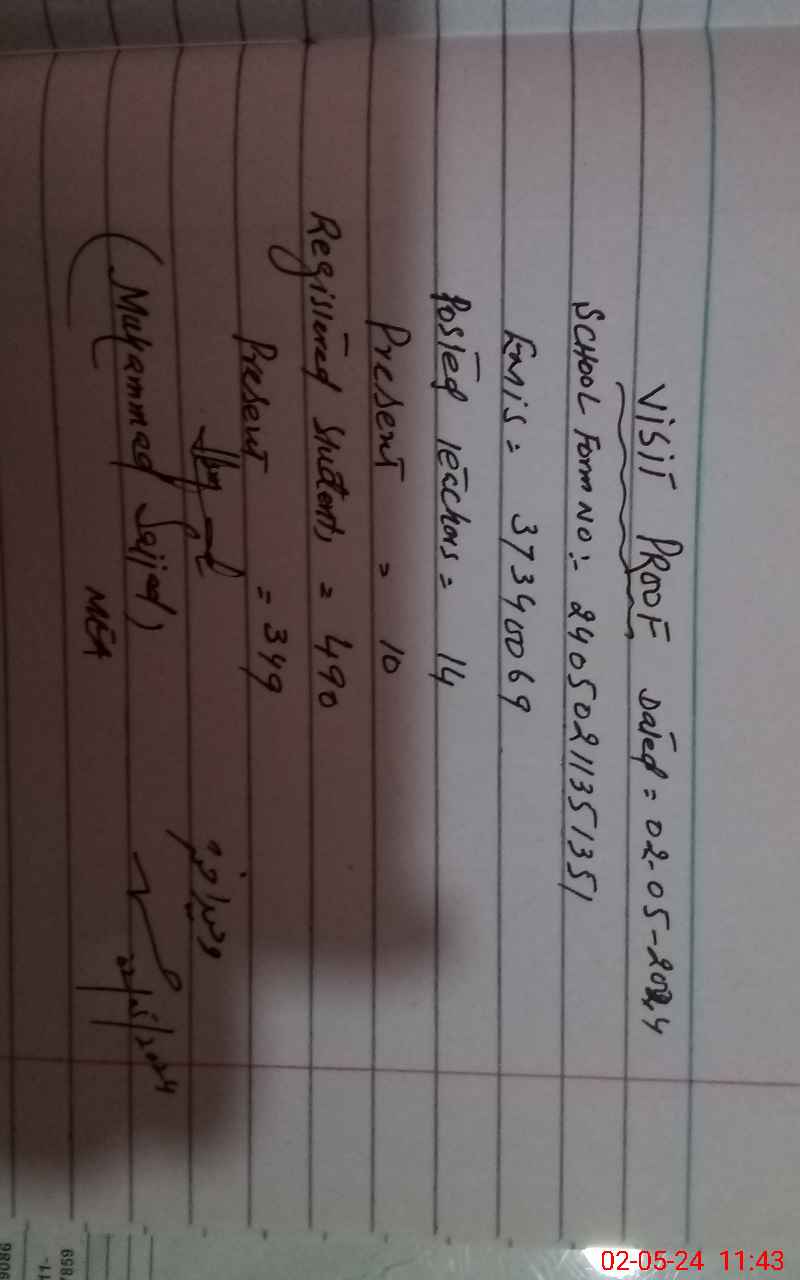 VISIT PROOF Dated = 02-05-2024
SCHOOL Form NO:- 24050211351351
Emis = 37340069
Posted Teachers = 14
Present = 10
Registered Students = 490
Present = 349
(Muhammad Sajjad)
MEA
02/05/2024
02-05-24 11:43